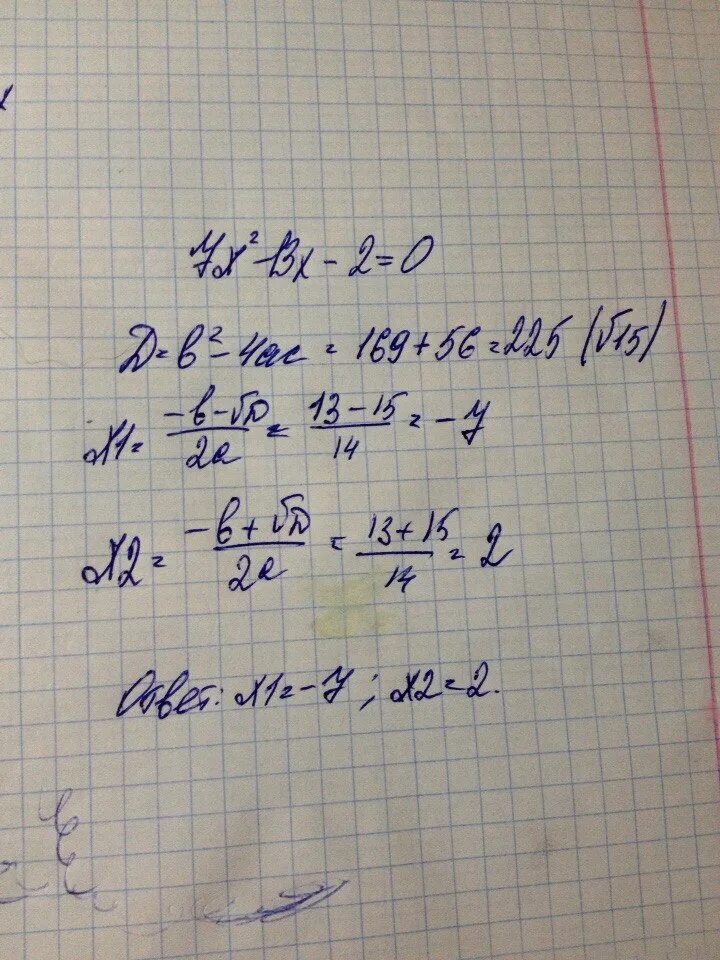 7x²-13x-2=0
D=b²-4ac=169+56=225 (√15)
x1=(-b-√D)/2a=(13-15)/14=-7
x2=(-b+√D)/2a=(13+15)/14=2
Ответ: x1=-7; x2=2.